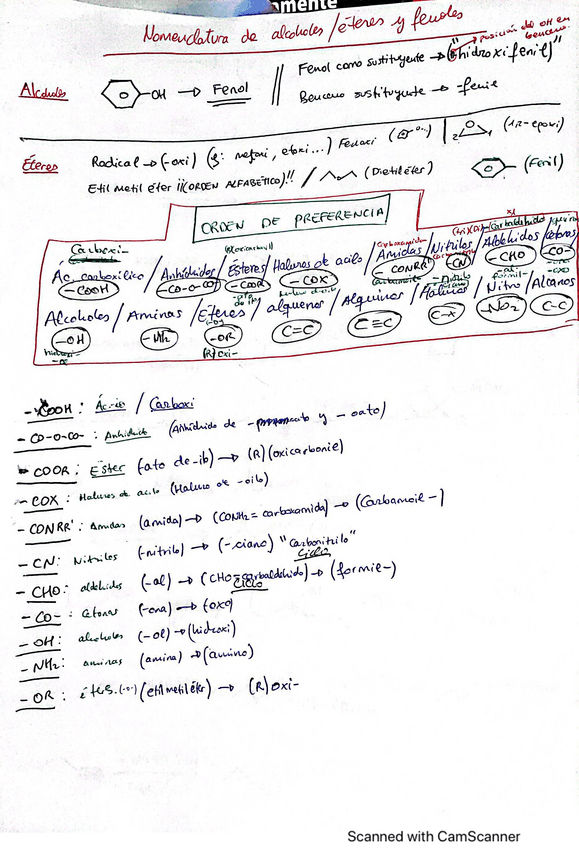 omente
Nomenclatura de alcoholes/éteres y fenoles
posición del OH en benceno.
Alcoholes
-OH → Fenol
Fenol como sustituyente → "(hidroxifenil)"
Benceno sustituyente → -fenil
Éteres
Radical → (-oxi) (Ej: metoxi, etoxi...) Fenoxi
(1,2-epoxi)
Etil metil éter ¡¡(ORDEN ALFABÉTICO)!! / (Dietiléter)
(Fenil)
ORDEN DE PREFERENCIA
Carboxi-
Ác. carboxílico / Anhídridos / Ésteres / Haluros de acilo / Amidas / Nitrilos / Aldehídos / Cetonas
-COOH -CO-O-CO- -COOR -COX -CONRR' -CN -CHO -CO-
Alcoholes / Aminas / Éteres / alquenos / Alquinos / Haluros / Nitro / Alcanos
-OH -NH₂ -OR C=C C≡C C-X -NO₂ C-C
(R)oxi-
-COOH: Ácido / Carboxi
-CO-O-CO-: Anhídrido (Anhídrido de - y -oato)
-COOR: Éster (ato de -ilo) → (R)(oxicarbonil)
-COX: Haluros de acilo (Haluro de -oilo)
-CONRR': Amidas (amida) → (CONH₂ = carboxamida) → (Carbamoil-)
-CN: Nitrilos (-nitrilo) → (-ciano) "Carbonitrilo"
Ciclo
-CHO: aldehídos (-al) → (CHO=carbaldehído) → (formil-)
Ciclo
-CO-: Cetonas (-ona) → (oxo)
-OH: alcoholes (-ol) → (hidroxi)
-NH₂: aminas (amina) → (amino)
-OR: éteres (etil metil éter) → (R)oxi-
Scanned with CamScanner